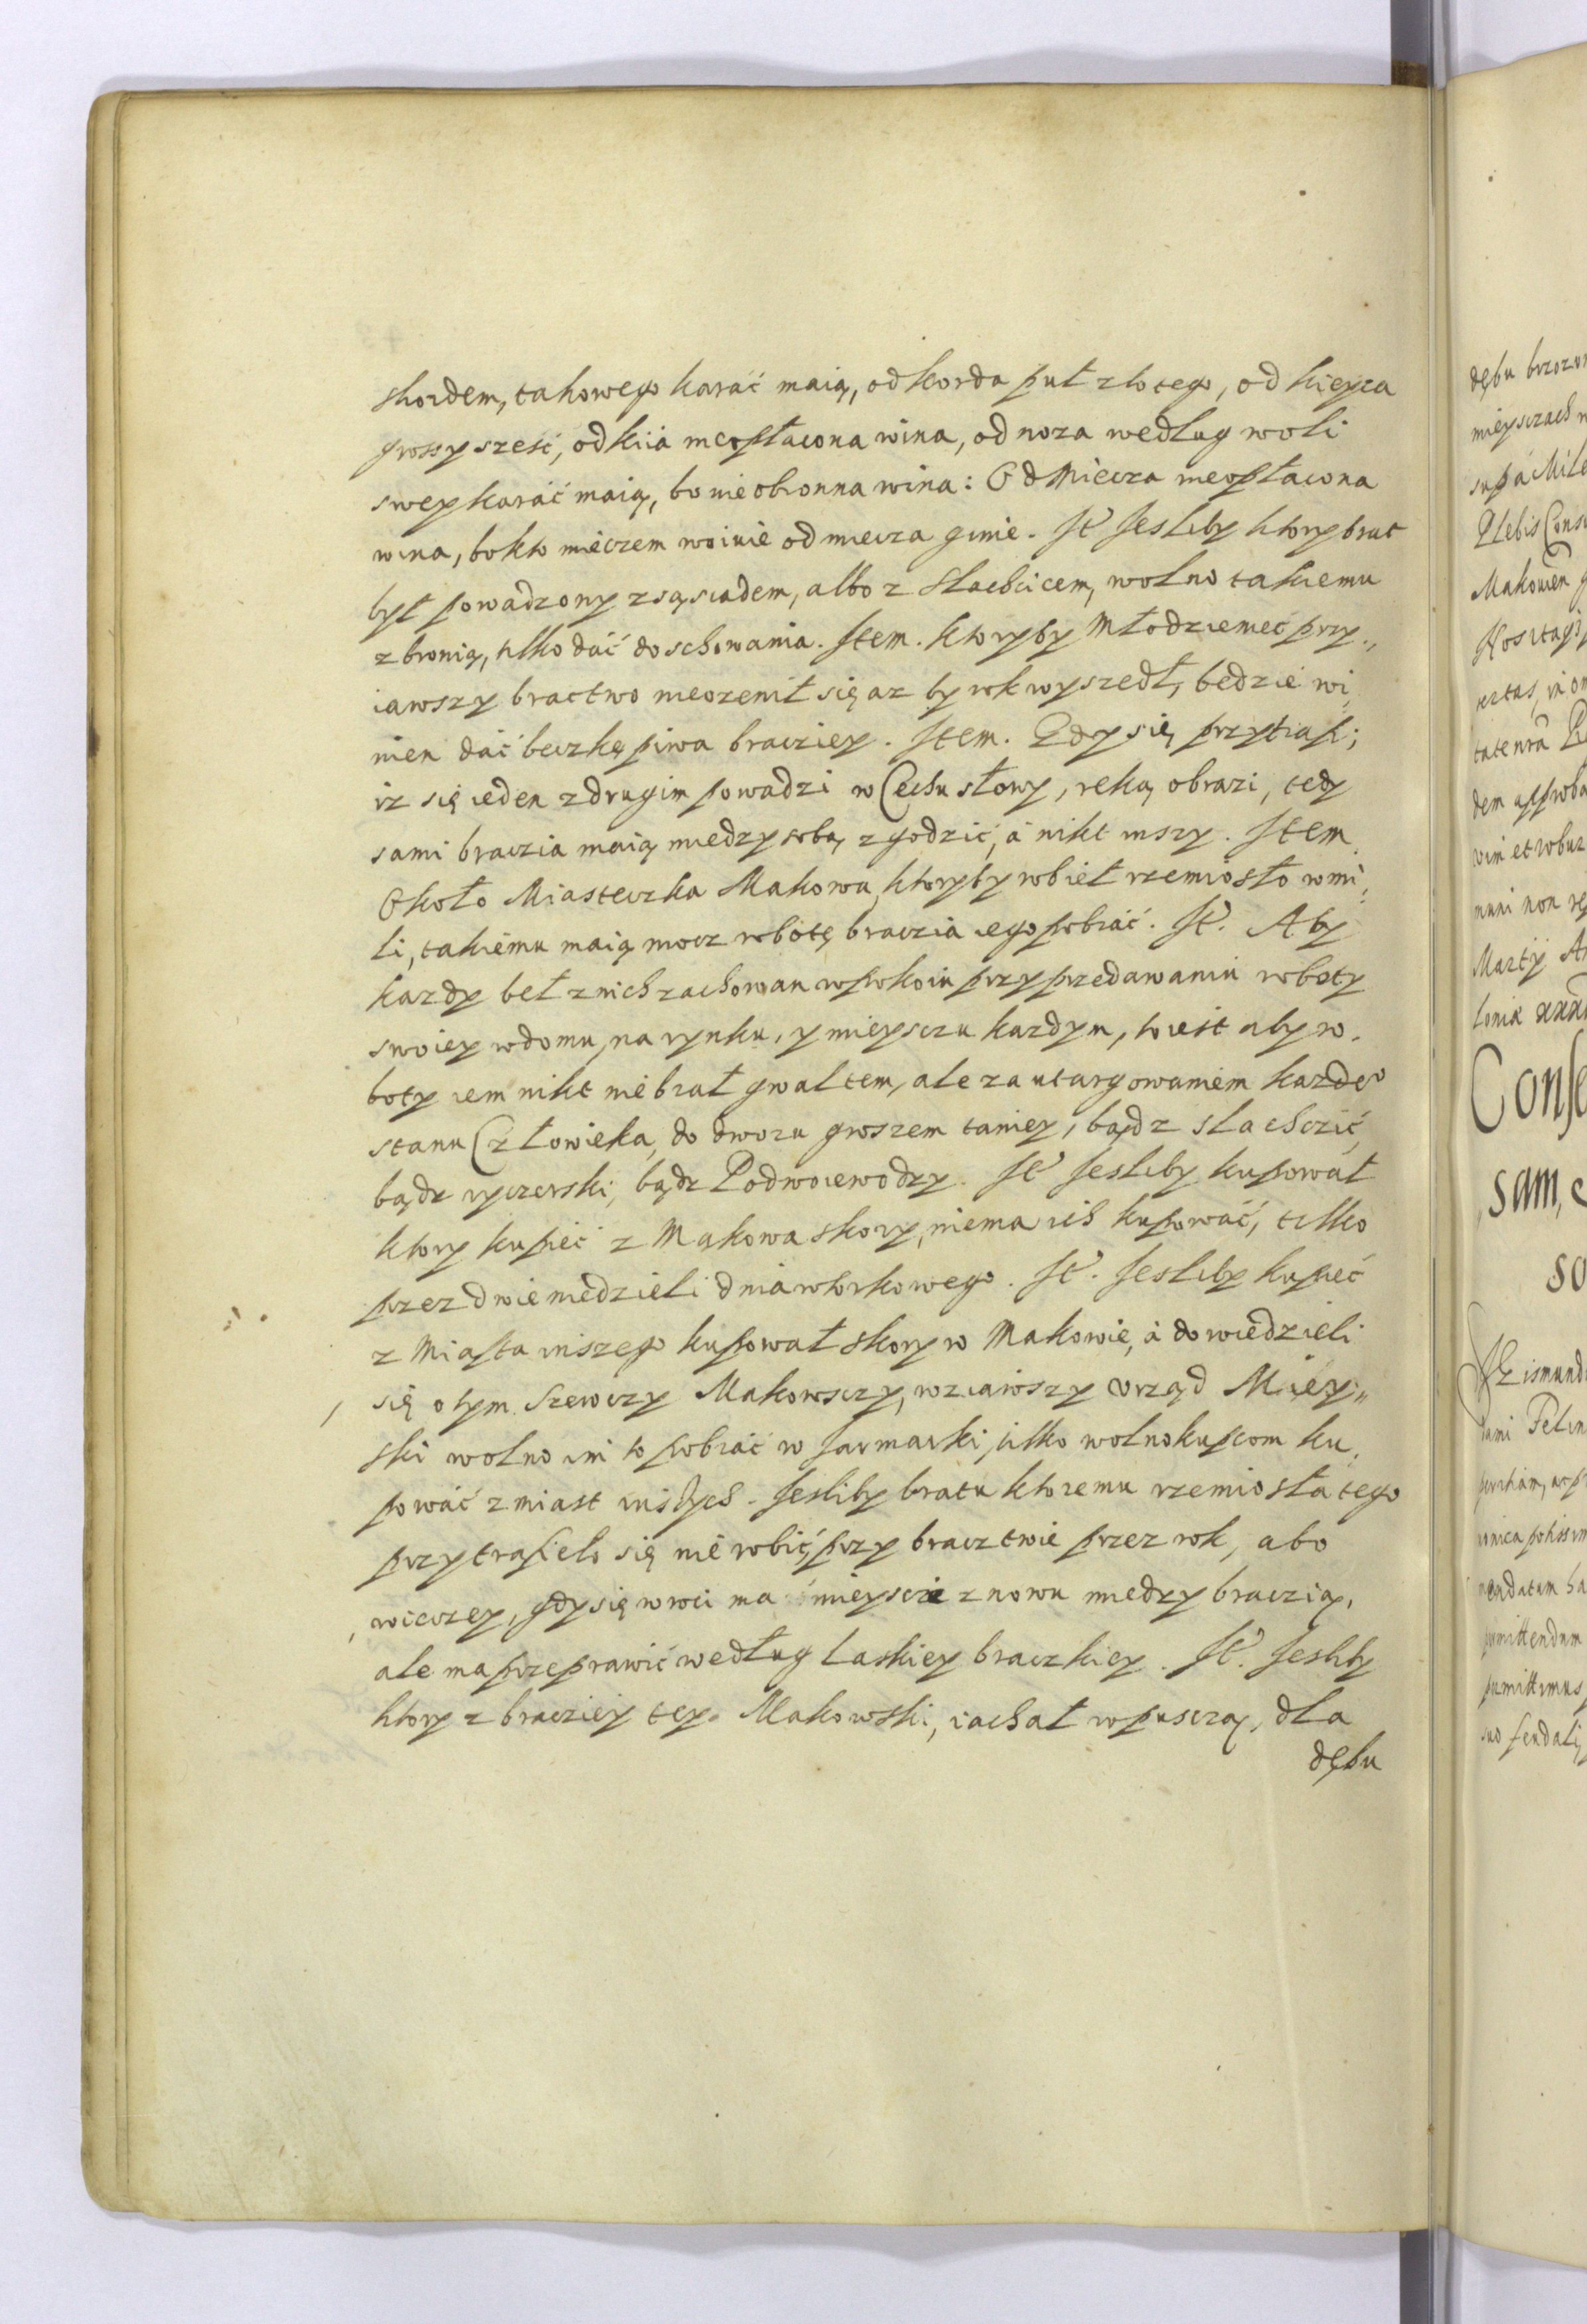 skordem, takowego karać maią, od korda puł złotego, od kieyza
grossy sześć, od kiia nieopłacona wina, od noza według woli
swey karać maią, bo nieobronna wina: Od Miecza nieopłacona
wina, bo kto mieczem woiuie od miecza ginie. It Jesliby ktory brat
był powadzony z sąsiadem, albo z Slachcicem, wolno takiemu
z bronią, tilko dać do schowania. Item. Ktoryby Młodzieniec przy„
iawszy bractwo nieozenił się az by rok wyszedł, będzie wi„
nien dać beczkę piwa bracziey. Item. Gdy się przytrafi;
iz się ieden z drugim powadzi w Cechu słowy, ręką obrazi, tedy
sami braczia maią miedzy sobą zgodzić, á nikt inszy. Item
Około Miasteczka Makowa, ktoryby robieł rzemiosło w mi„
li, takiemu maią mocz robotę braczia iego pobiać. It. Aby
kazdy beł z nich zachowan w pokoiu przy przedawaniu roboty
swoiey w domu, na rynku, y mieysczu kazdym, to iest aby ro„
boty iem nikt nie brał gwałtem, ale za utargowaniem kazdeo
stanu Człowieka, do dworu groszem taniey, bądz slachcić,
bądz ryczerski, bądz Podwoiewodzy. It Jesliby kupował
ktory kupieć z Makowa skory, niema ich kupować, tilko
przez dwie niedzieli dnia wtorkowego. It. Jesliby kupieć
z Miasta inszego kupował skory w Makowie, á dowiedzieli
się o tym Szewczy Makowsczy, wziąwszy Vrząd Miey„
ski wolno im to pobrać w Jarmarki, tilko wolno kupcom ku„
pować z miast inszych. Jesliby bratu ktoremu rzemiosła tego
przytrafieło się nie robić, przy bracztwie przez rok, abo
wieczey, gdy się wroci ma mieyscie znowu miedzy braczią,
ale ma przeprawić według Laskiey braczkiey. It. Jesliby
ktory z bracziey tey Makowski, iachał w pusczą, dla
dębu
dębu brzozo
mieysczach
Plebis
Makowien
Marty
Conse
sam,
so